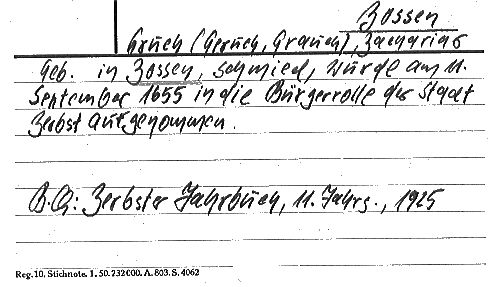 Zossen
Gruch (Geruch, Grauch), Zacharias
Geb. in Zossen, Schmied, wurde am 11.
September 1655 in die Bürgerrolle der Stadt
Zerbst aufgenommen.
B.Q.: Zerbster Jahrbuch, 11. Jahrg., 1925
Reg. 10. Stichnote. 1. 50. 232000. A. 803. S. 4062